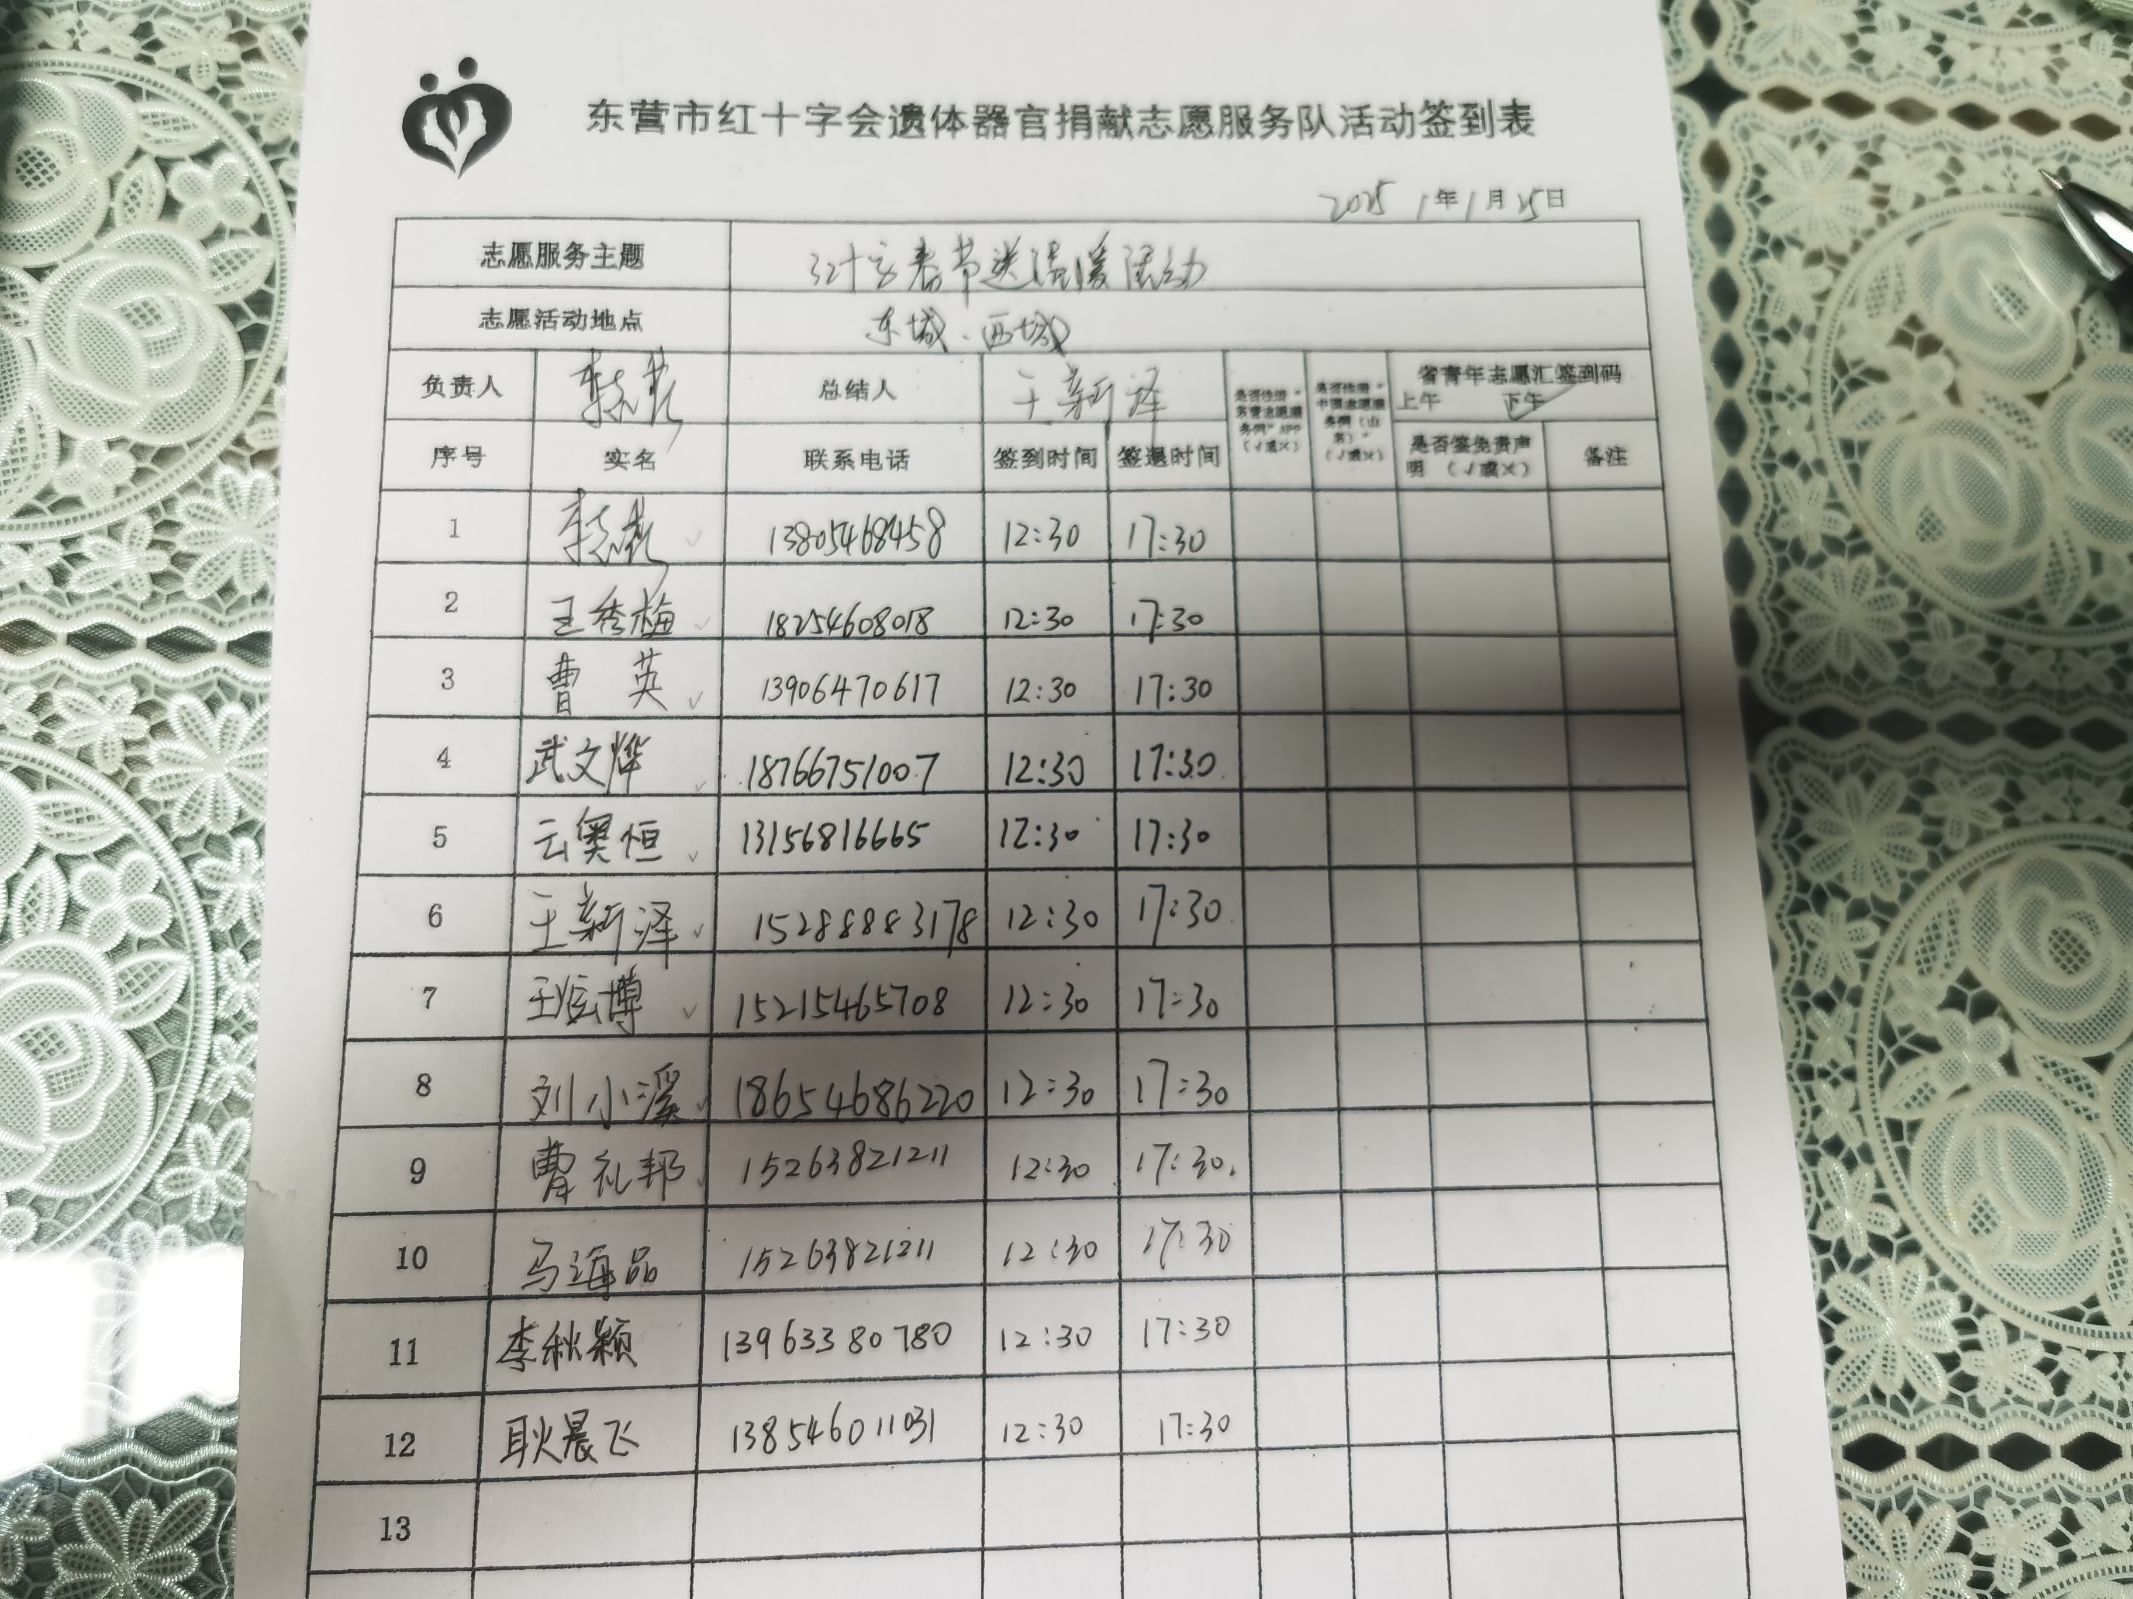 东营市红十字会遗体器官捐献志愿服务队活动签到表
2025 1年1月25日
志愿服务主题 红十字春节送温暖活动
志愿活动地点 东城、西城
负责人 总结人 王新泽 省青年志愿汇签到码
上午 下午
序号 实名 联系电话 签到时间 签退时间 是否签免责声明（√或×） 备注
1 13805468458 12:30 17:30
2 王秀梅 18254608018 12:30 17:30
3 曹英 13906470617 12:30 17:30
4 武文烨 18766751007 12:30 17:30
5 云奥恒 13156816665 12:30 17:30
6 王新泽 15288883178 12:30 17:30
7 王炫博 15215465708 12:30 17:30
8 刘小溪 18654686220 12:30 17:30
9 曹礼邦 15263821211 12:30 17:30
10 马海品 15263821211 12:30 17:30
11 李秋颖 13963380780 12:30 17:30
12 耿晨飞 13854601131 12:30 17:30
13